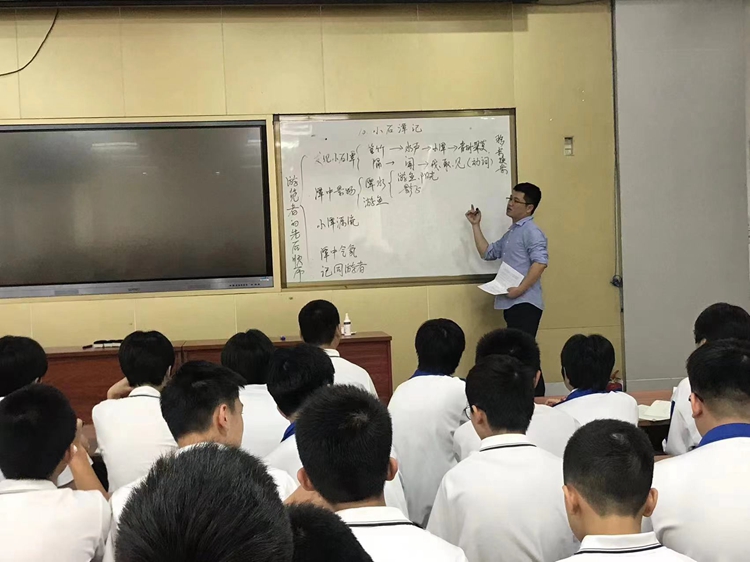 小石潭记
游览者的先后顺序
发现小石潭
篁竹→水声→小潭→青树翠蔓
隔→闻→伐、取、见(动词)
移步换景
潭中景物
潭水
游鱼
小潭源流
潭中气氛
记同游者